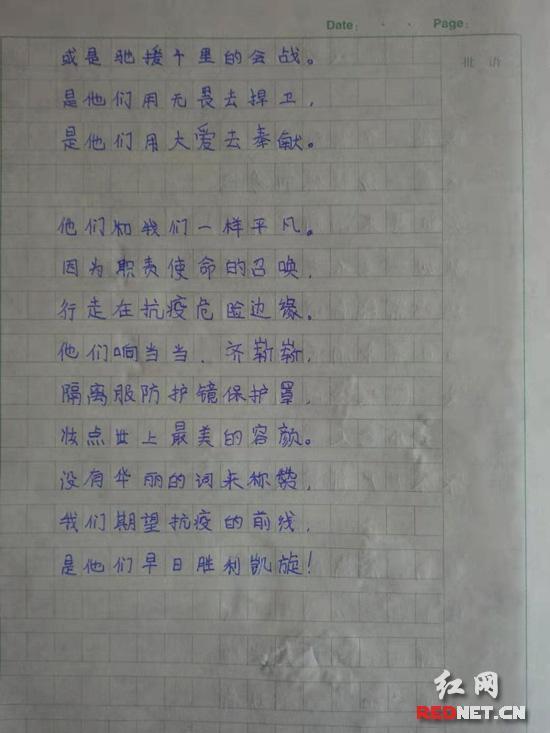 Date: . . Page:
批语
或是驰援千里的会战。
是他们用无畏去捍卫,
是他们用大爱去奉献。
他们和我们一样平凡。
因为职责使命的召唤,
行走在抗疫危险边缘。
他们响当当、齐崭崭,
隔离服防护镜保护罩,
妆点世上最美的容颜。
没有华丽的词来称赞,
我们期望抗疫的前线,
是他们早日胜利凯旋!
红网
REDNET.CN